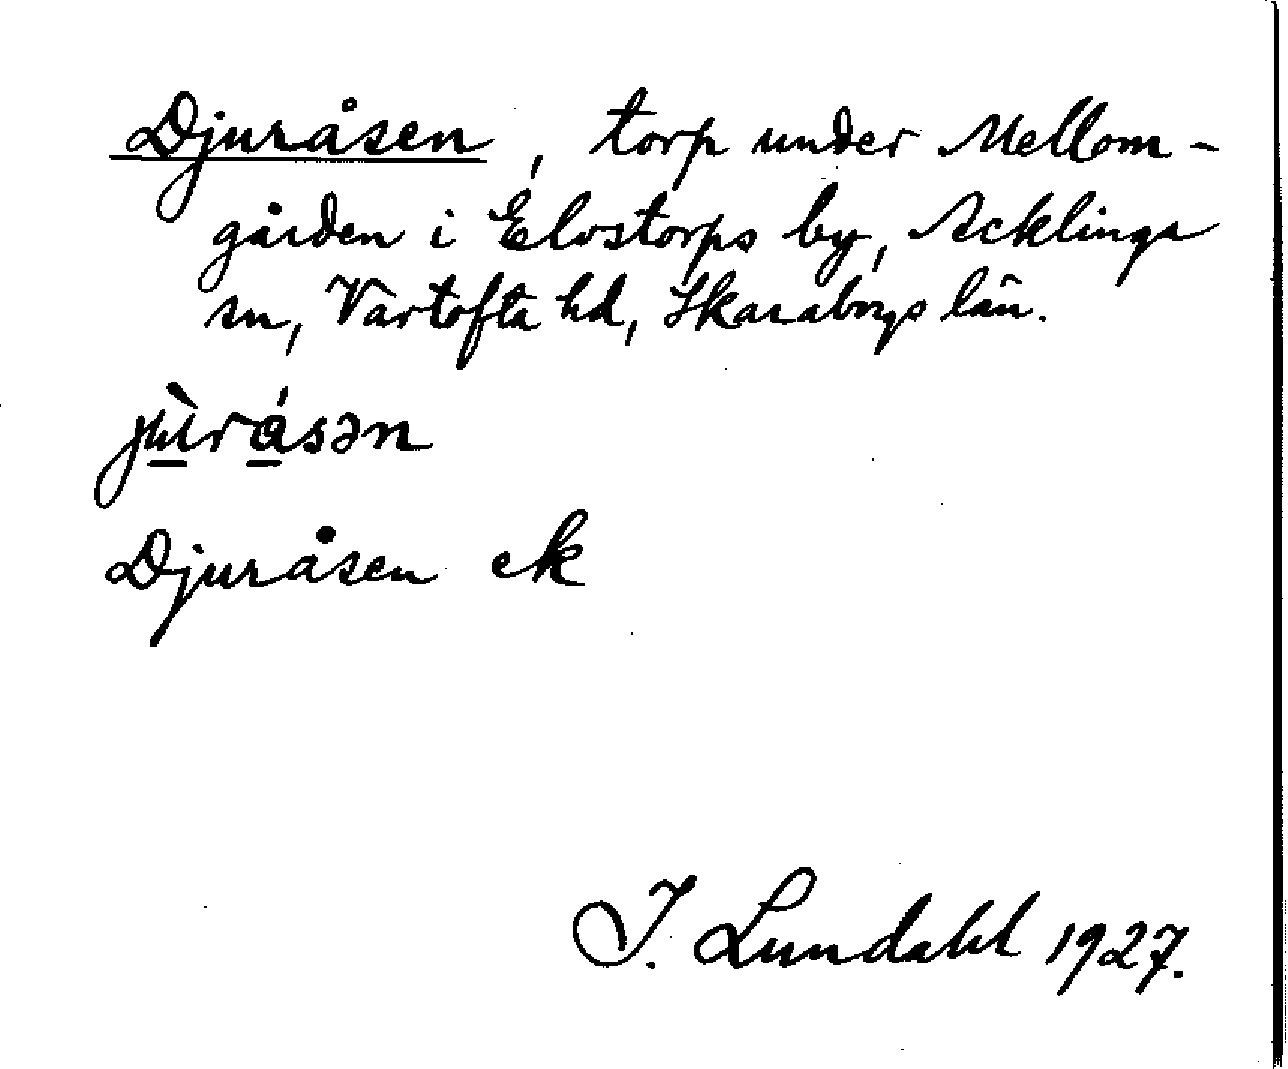 Djuråsen, torp under Mellom-
gården i Elvstorps by, Acklinga
sn, Vartofta hd, Skaraborgs län.
jùrásən
Djuråsen ek
I. Lundahl 1927.